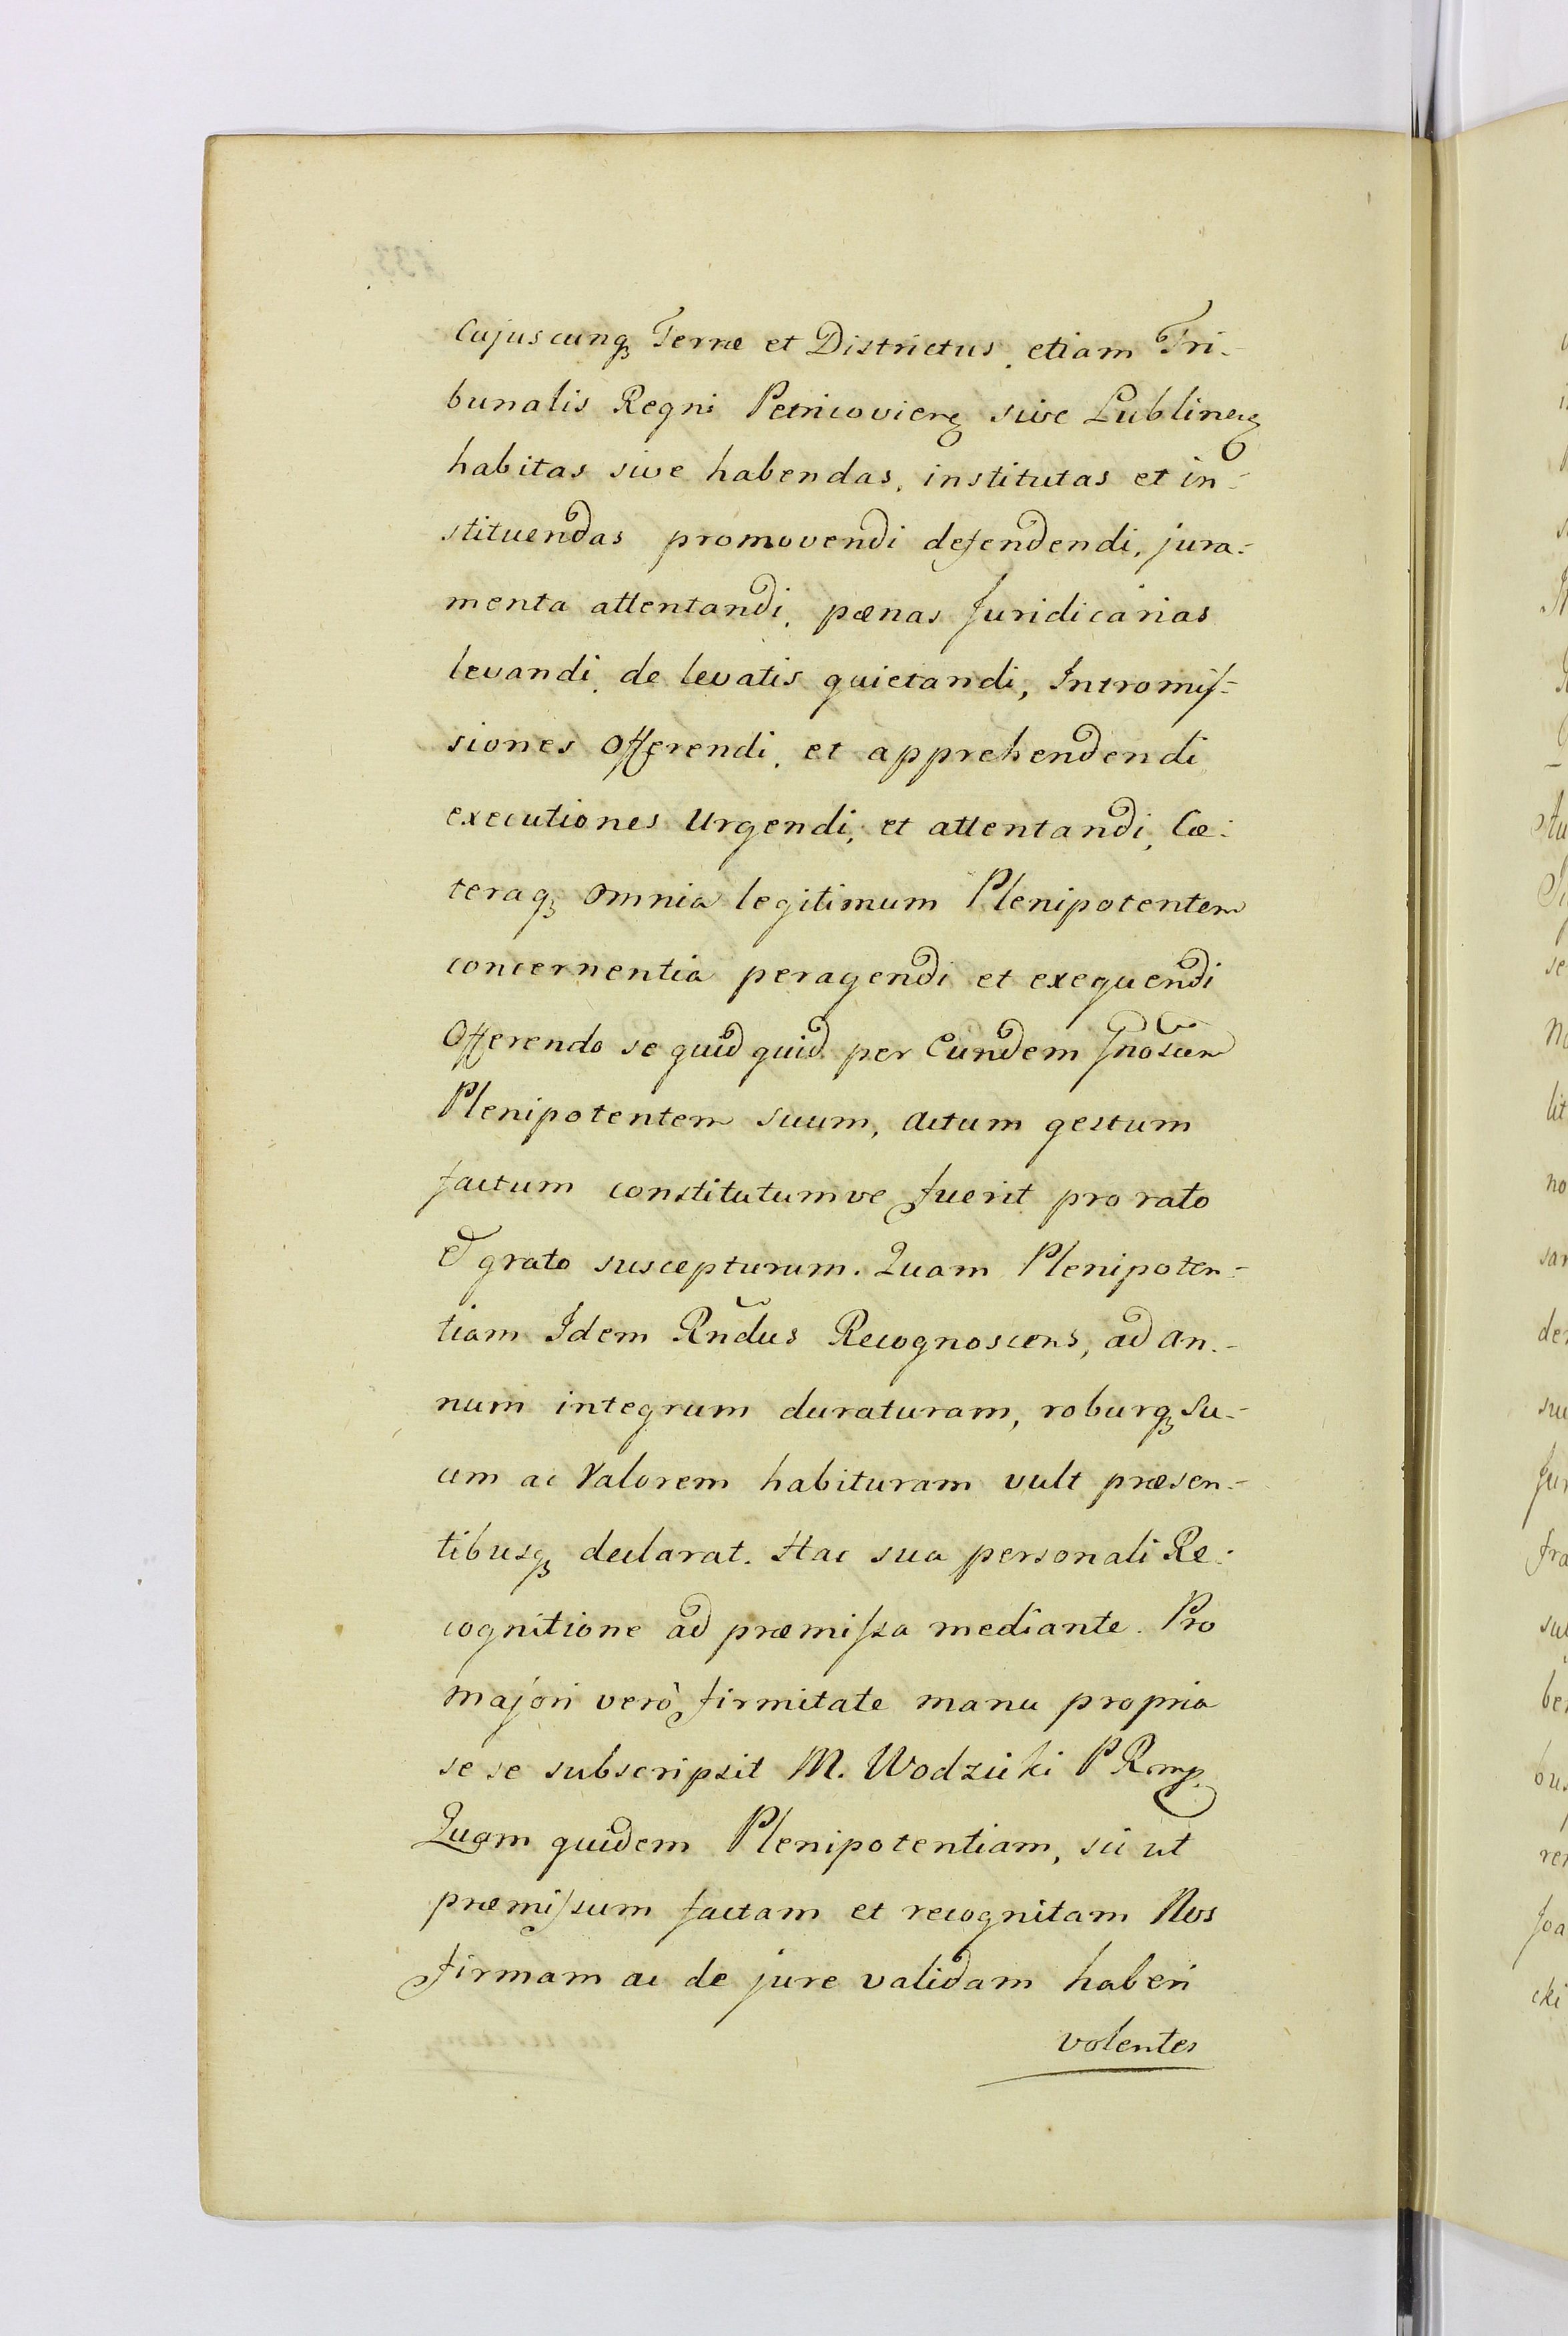 Cujuscunq₃ Terræ et Districtus, etiam Tri-
bunalis Regni Petricovien₃ sive Lublinen₃
habitas sive habendas, institutas et in-
stituendas promovendi defendendi, jura-
menta attentandi, pænas Juridicarias
levandi, de levatis quietandi, Intromiſ-
siones Offerendi, et apprehendendi
executiones Urgendi, et attentandi, Cæ-
teraq₃ Omnia legitimum Plenipotentem
concernentia peragendi et exequendi
Offerendo se quidquid per Eundem
Plenipotentem suum, Actum gestum
factum constitutumve fuerit pro rato
Et grato suscepturum. Quam Plenipoten-
tiam Idem Rndus Recognoscens, ad an-
num integrum duraturam, roburq₃ Su-
um ac Valorem habituram vult præsen-
tibusq₃ declarat. Hac sua personali Re-
cognitione ad præmiſsa mediante. Pro
majori verò firmitate manu propria
se se subscripsit M. Wodzicki P R mp.
Quam quidem Plenipotentiam, sic ut
præmiſsum factam et recognitam Nos
firmam ac de jure validam haberi
volentes